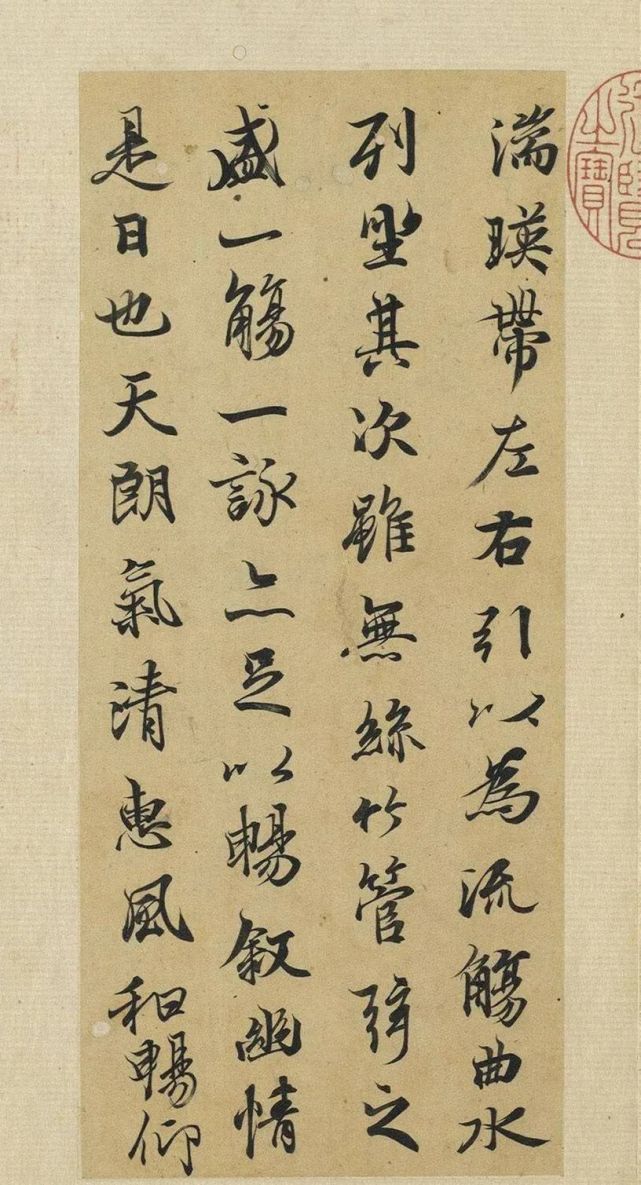 湍暎帶左右引以為流觴曲水
列坐其次雖無絲竹管弦之
盛一觴一詠亦足以暢敘幽情
是日也天朗氣清惠風和暢仰
之寶